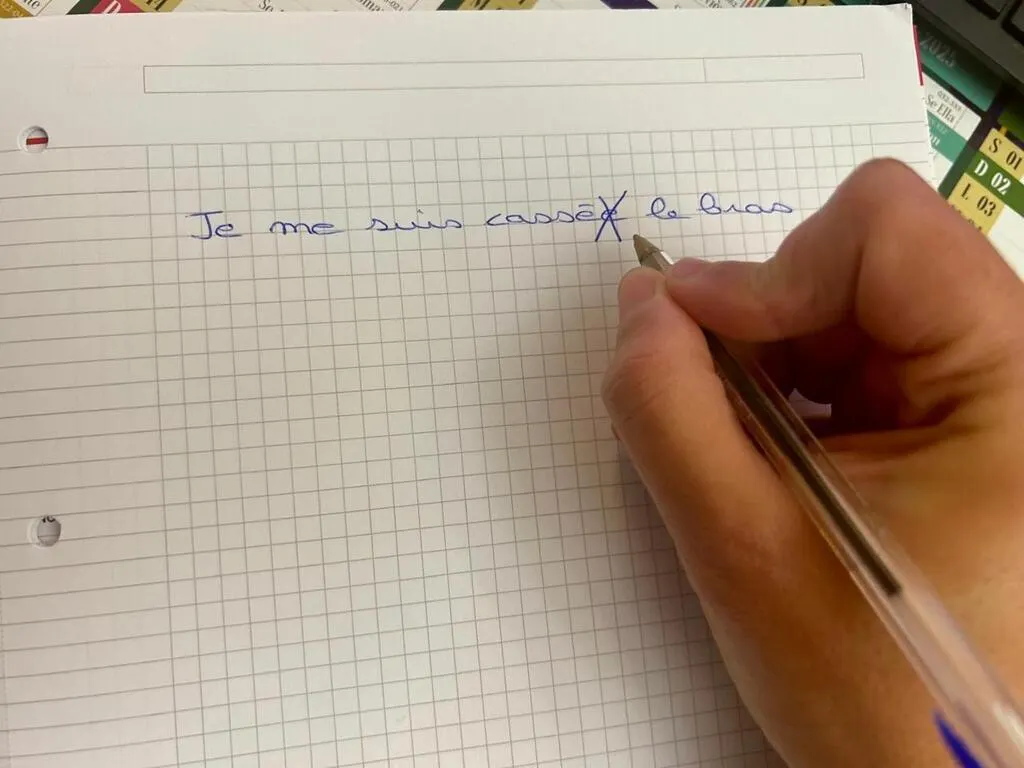 Se
D
M
2025
Se Ella
S 01
D 02
L 03
Je me suis cassé le bras